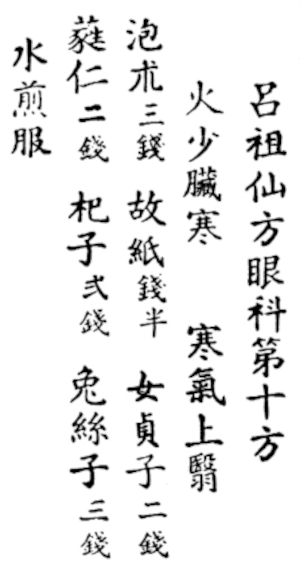 呂祖仙方眼科第十方
火少臟寒 寒氣上翳
泡朮三錢 故紙錢半 女貞子二錢
蕤仁二錢 杞子弍錢 兔絲子三錢
水煎服